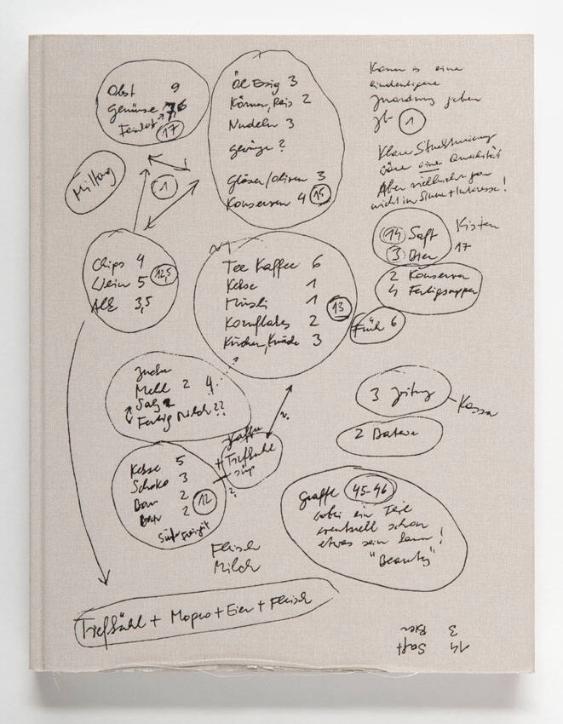 Obst 9
Gemüse 7,5
17
Öl Essig 3
Körner, Reis 2
Nudeln 3
gewürze ?
Gläser/oliven 3
Konserven 4 15
Kann is eine
eindeutigere
Zuordnung geben
zb 1
Klare Strukturierung
wäre eine Qualität
Aber vielleicht gar
nicht in Sinne + Interesse!
1
14 Saft
3 Bier
Kisten
17
2 Konserven
4 Fertigsuppen
Chips 4
Wein 5
Alk 3,5
12,5
Tee Kaffee 6
Kekse 1
Müsli 1
Kornflakes 2
Kuchen, 3
13
Früh 6
Zucker
Mehl 2 4
Salz
Fertig Milch ??
3 Zeitung
Kassa
Kaffee
+ Tiefkühl
?
Kekse 5
Schoko 3
Bon 2
Bon 2
12
Graffe 45-46
wobei ein Teil
eventuell schon
etwas sein kann!
"Beauty"
Fleisch
Milch
Tiefkühl + Mopro + Eier + Fleisch
14 Saft
3 Bier